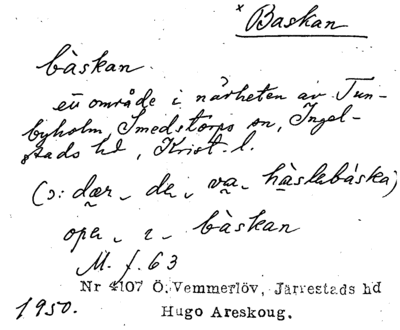 × Baskan
bàskan
ett område i närheten av Tun-
byholm, Smedstorps sn, Ingel-
stads hd, Krist. l.
(ɔ: dær, de, va, hàslabáska)
opa, i, bàskan
M. f. 63
Nr 4107 Ö. Vemmerlöv, Järrestads hd
1950. Hugo Areskoug.